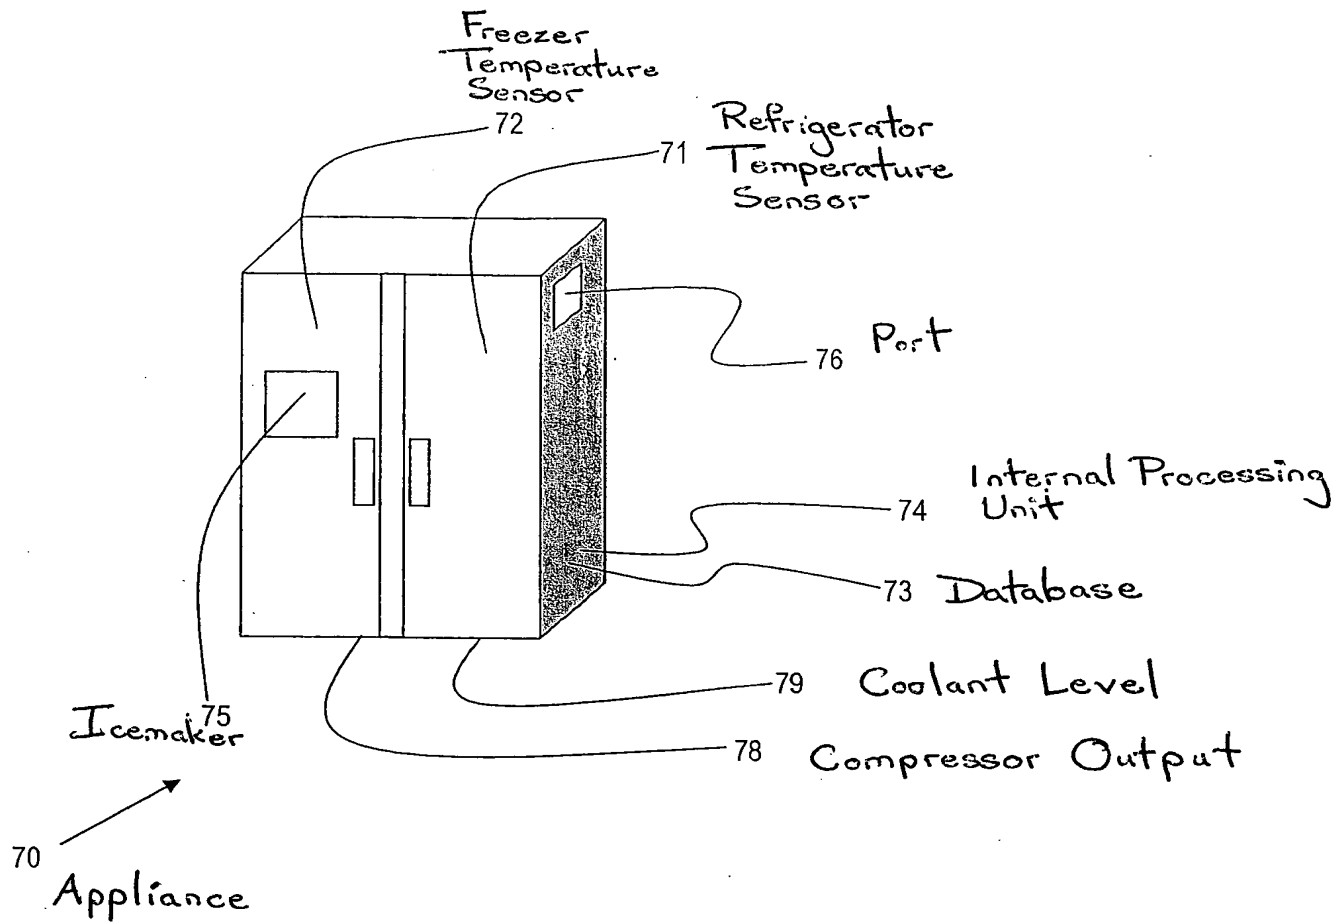 Freezer
Temperature
Sensor
72
71
Refrigerator
Temperature
Sensor
76 Port
Internal Processing
74 Unit
73 Database
79 Coolant Level
75
Icemaker
78 Compressor Output
70
Appliance